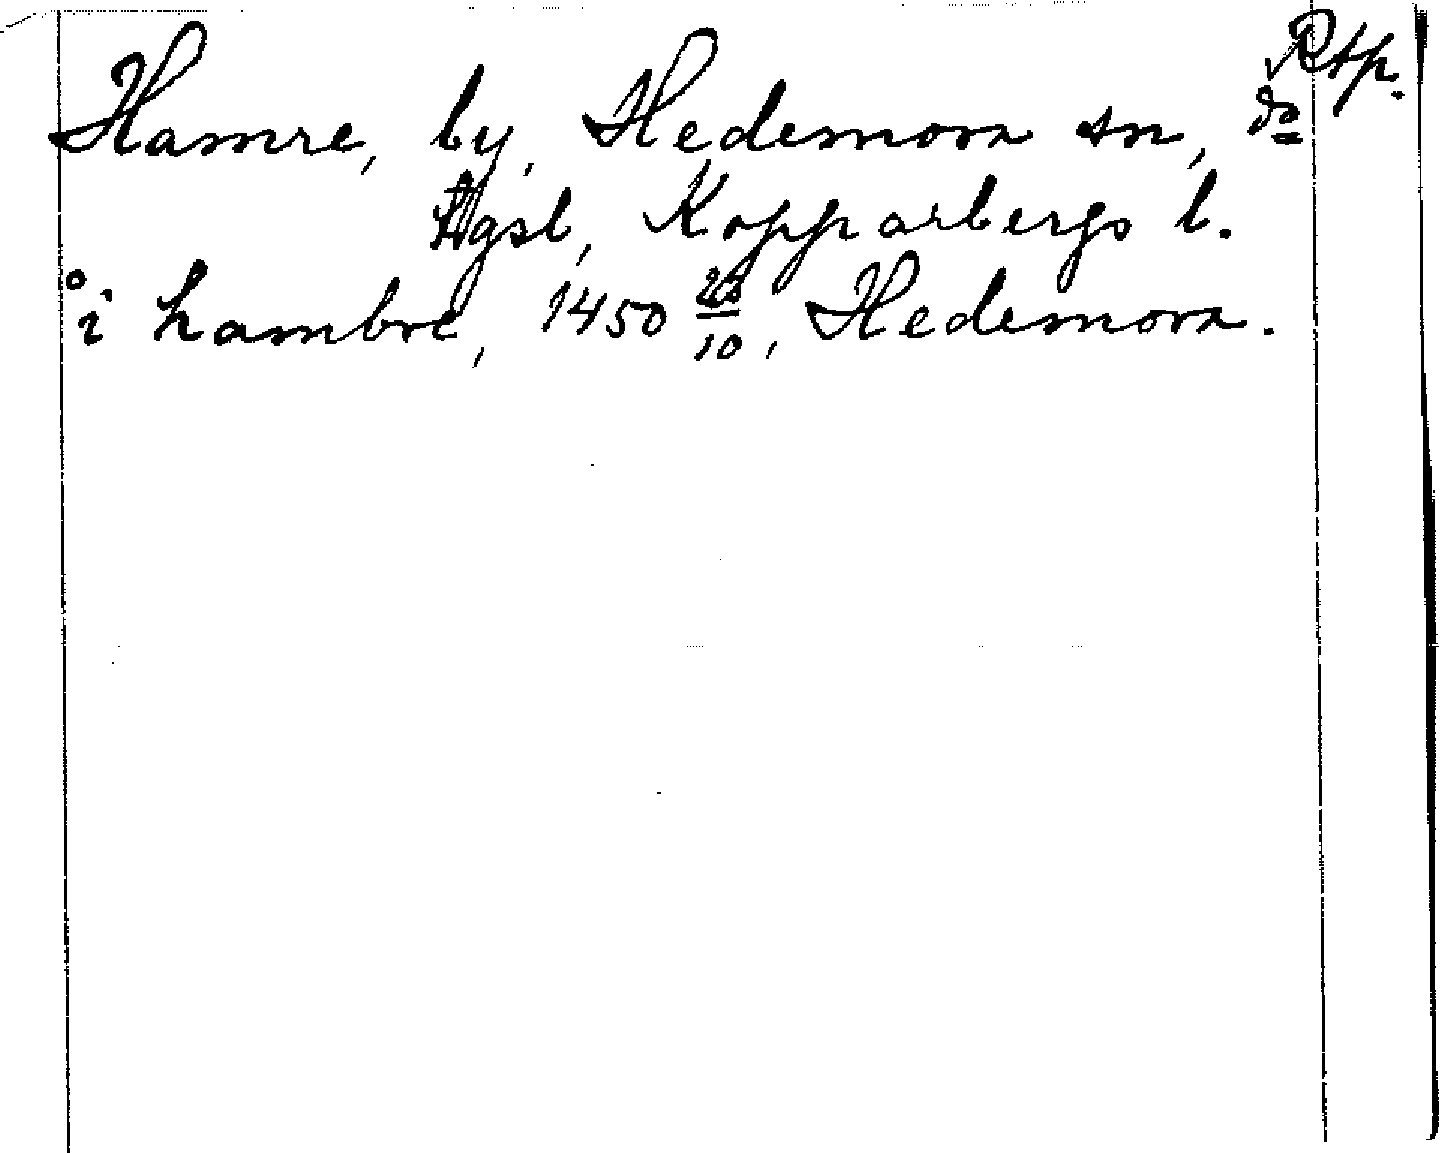 Rtp.
Hamre, by, Hedemora sn, do
Hgsl, Kopparbergs l.
i hambre, 1450 28/10, Hedemora.